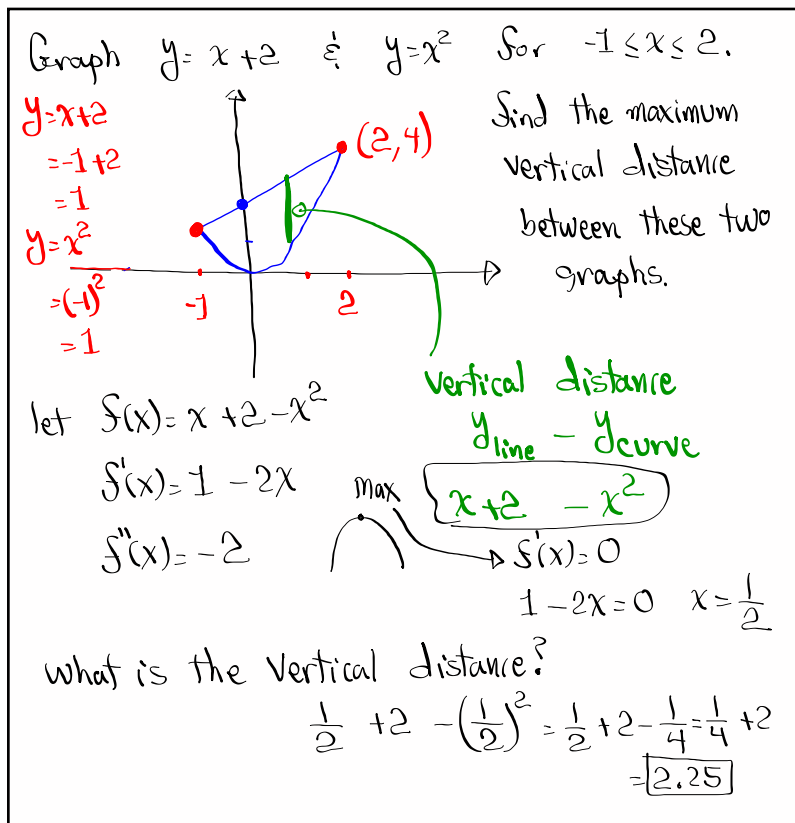 Graph y = x+2 & y=x² for -1 ≤ x ≤ 2.
find the maximum
vertical distance
between these two
graphs.
y=x+2
=-1+2
=1
y=x²
=(-1)²
=1
(2,4)
-1
2
vertical distance
y line - y curve
x+2 - x²
let f(x)= x+2-x²
f'(x)= 1-2x
f"(x)= -2
max
f'(x)=0
1-2x=0 x=1/2
what is the vertical distance?
1/2 +2 -(1/2)² = 1/2 +2 - 1/4 = 1/4 +2
= 2.25